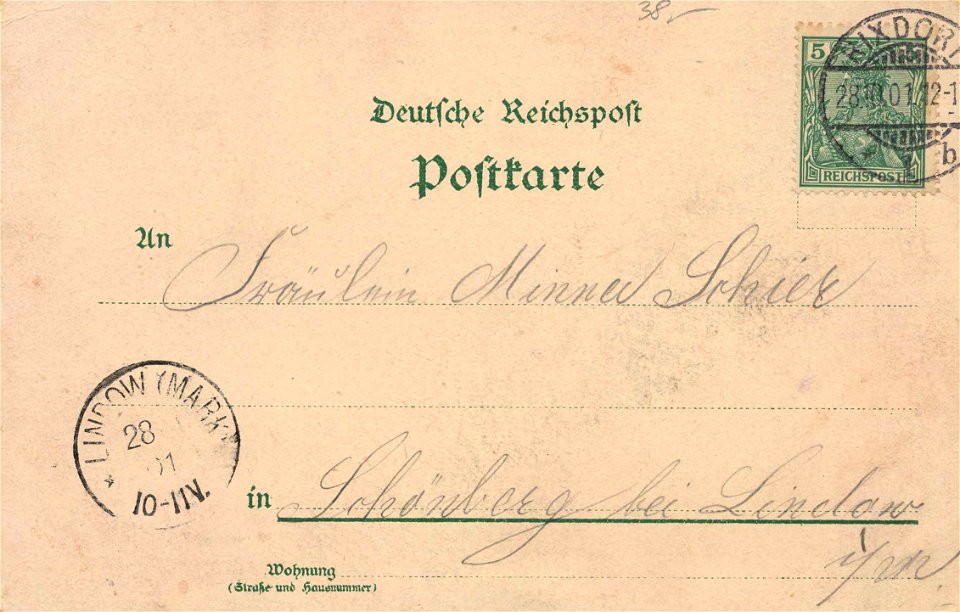 38
5
RIXDORF
28 01 12-1
b
REICHSPOST
Deutsche Reichspost
Postkarte
An Fräulein Minna Schier
LINDOW (MARK)
28
01
10-11V.
in Schönberg bei Lindow
i/m
Wohnung
(Straße und Hausnummer)